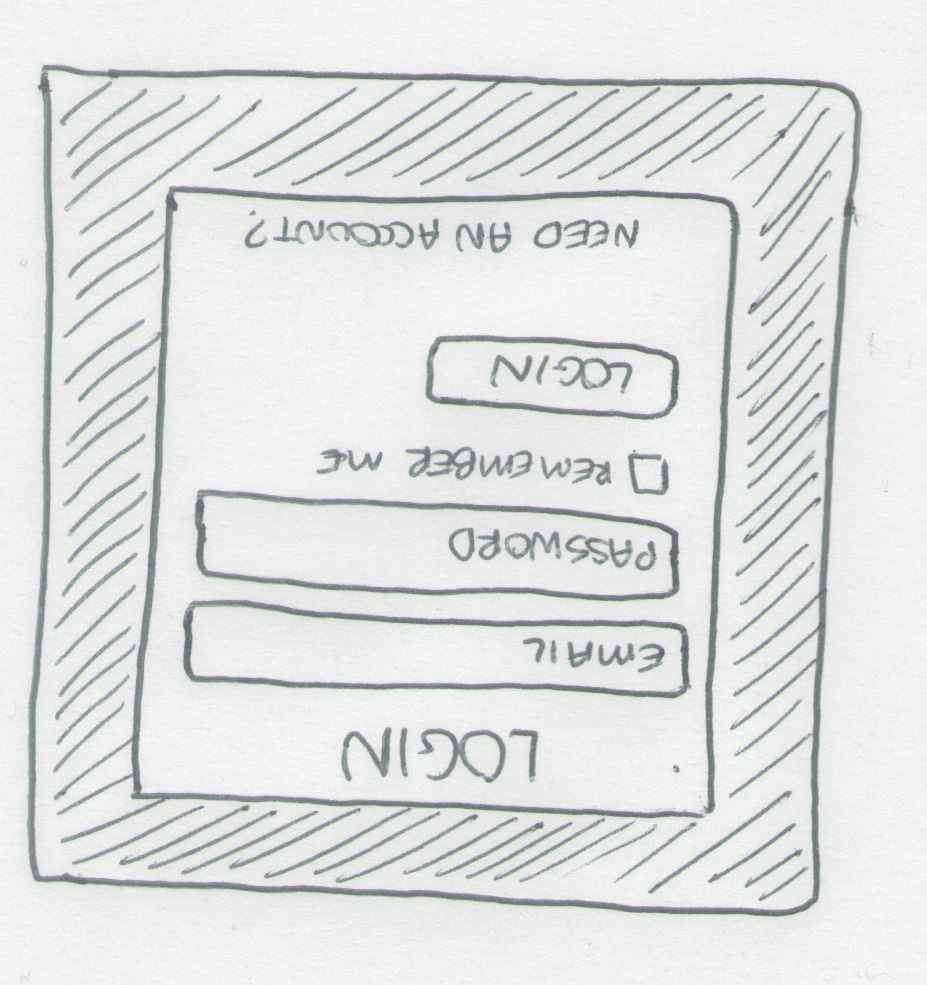 LOGIN
EMAIL
PASSWORD
REMEMBER ME
LOGIN
NEED AN ACCOUNT?